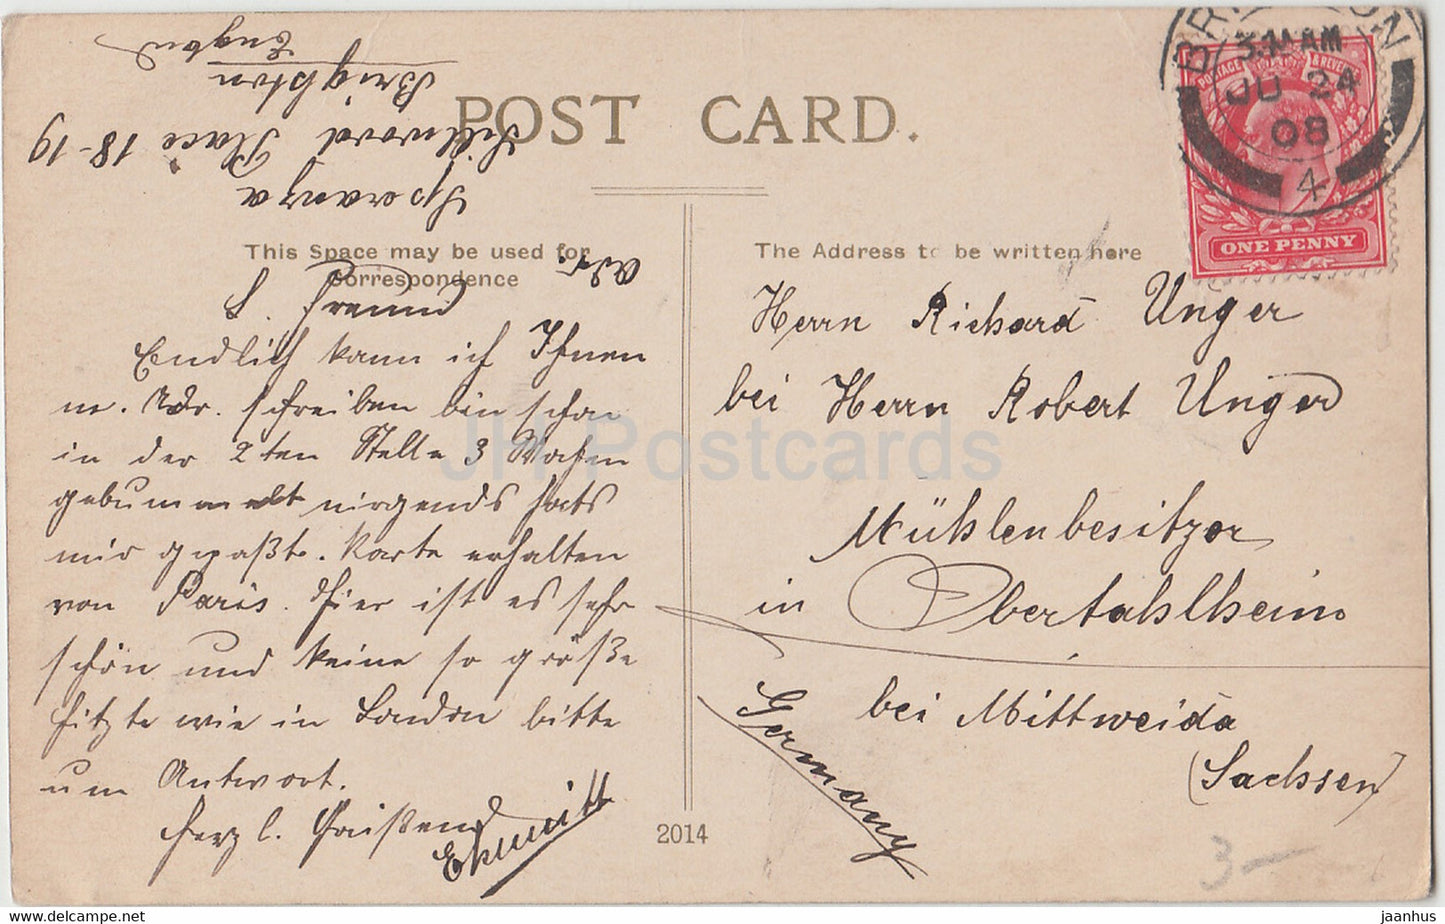 POST CARD.
This Space may be used for
Correspondence
The Address to be written here
BRIGHTON
3.1 AM
JU 24
08
4
POSTAGE & REVENUE
ONE PENNY
Adr.
Speranza
Sillwood Place 18-19
Brighton
England
L. Freund
Endlich kann ich Ihnen
m. Adr. schreiben bin schon
in der 2ten Stelle 3 Wochen
gebummelt nirgends hats
mir gepaßt. Karte erhalten
von Paris. Hier ist es sehr
schön und keine so größe
Hitzte wie in London bitte
um Antwort.
herzl.
Herrn Richard Unger
bei Herrn Robert Unger
Mühlenbesitzer
in Obertahlheim
bei Mittweida
(Sachsen)
Germany
2014
3-
JH Postcards
www.delcampe.net
jaanhus